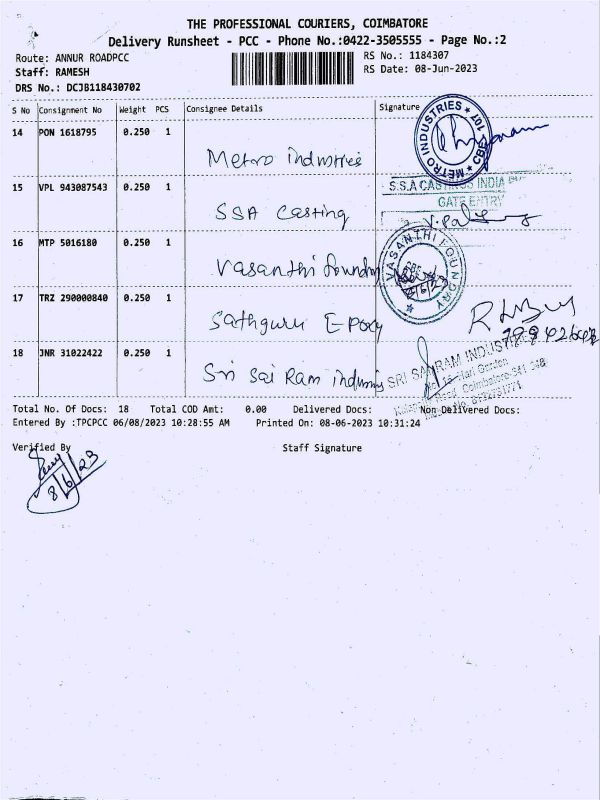 THE PROFESSIONAL COURIERS, COIMBATORE
Delivery Runsheet - PCC - Phone No.:0422-3505555 - Page No.:2
Route: ANNUR ROADPCC RS No.: 1184307
Staff: RAMESH RS Date: 08-Jun-2023
DRS No.: DCJB118430702
S No Consignment No Weight PCS Consignee Details Signature
14 PON 1618795 0.250 1
Metro industries
METRO INDUSTRIES ★ CBE
15 VPL 943087543 0.250 1
S.S.A CASTINGS INDIA
GATE ENTRY
SSA Casting
16 MTP 5016180 0.250 1
Vasanthi foundry
VASANTHI FOUNDRY
CBE
17 TRZ 290000840 0.250 1
Sathguru Epoxy
18 JNR 31022422 0.250 1
Sri Sai Ram industry
SRI SAIRAM INDUSTRIES
Hari Garden
Road, Coimbatore-641
Total No. Of Docs: 18 Total COD Amt: 0.00 Delivered Docs: Non-Delivered Docs:
Entered By :TPCPCC 06/08/2023 10:28:55 AM Printed On: 08-06-2023 10:31:24
Verified By Staff Signature
8/6/23